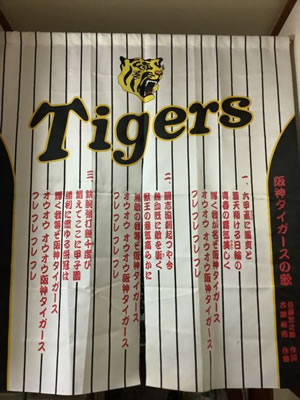 Tigers
阪神タイガースの歌
佐藤惣之助 作詞
古関裕而 作曲
一、六甲颪に颯爽と
蒼天翔ける日輪の
青春の覇気美しく
輝く我が名ぞ阪神タイガース
オウオウ オウオウ阪神タイガース
フレ フレ フレ フレ
二、闘志溌剌起つや今
熱血既に敵を衝く
獣王の意気高らかに
無敵の我等ぞ阪神タイガース
オウオウ オウオウ阪神タイガース
フレ フレ フレ フレ
三、鉄腕強打幾千度び
鍛えてここに甲子園
勝利に燃ゆる栄冠は
輝く我等ぞ阪神タイガース
オウオウ オウオウ阪神タイガース
フレ フレ フレ フレ